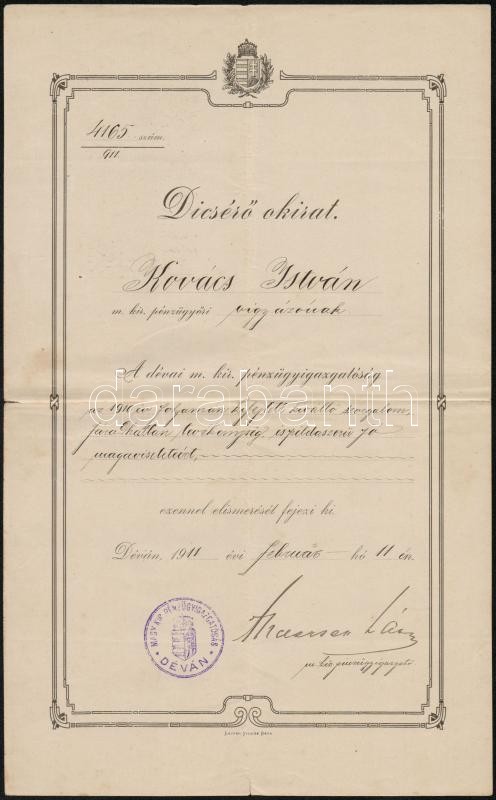 4165 szám.
911
Dicsérő okirat.
Kovács István
m. kir. pénzügyőri vigyázónak
A dévai m. kir. pénzügyigazgatóság
az 1910 év folyamán kifejtett kiváló szorgalom,
fáradhatlan tevékenység, és példaszerű jó
magaviseletéért,
ezennel elismerését fejezi ki.
Déván, 1911 évi február hó 11 én.
MAGY. KIR. PÉNZÜGYIGAZGATÓSÁG
DÉVÁN
m. kir. pénzügyigazgató
darabanth